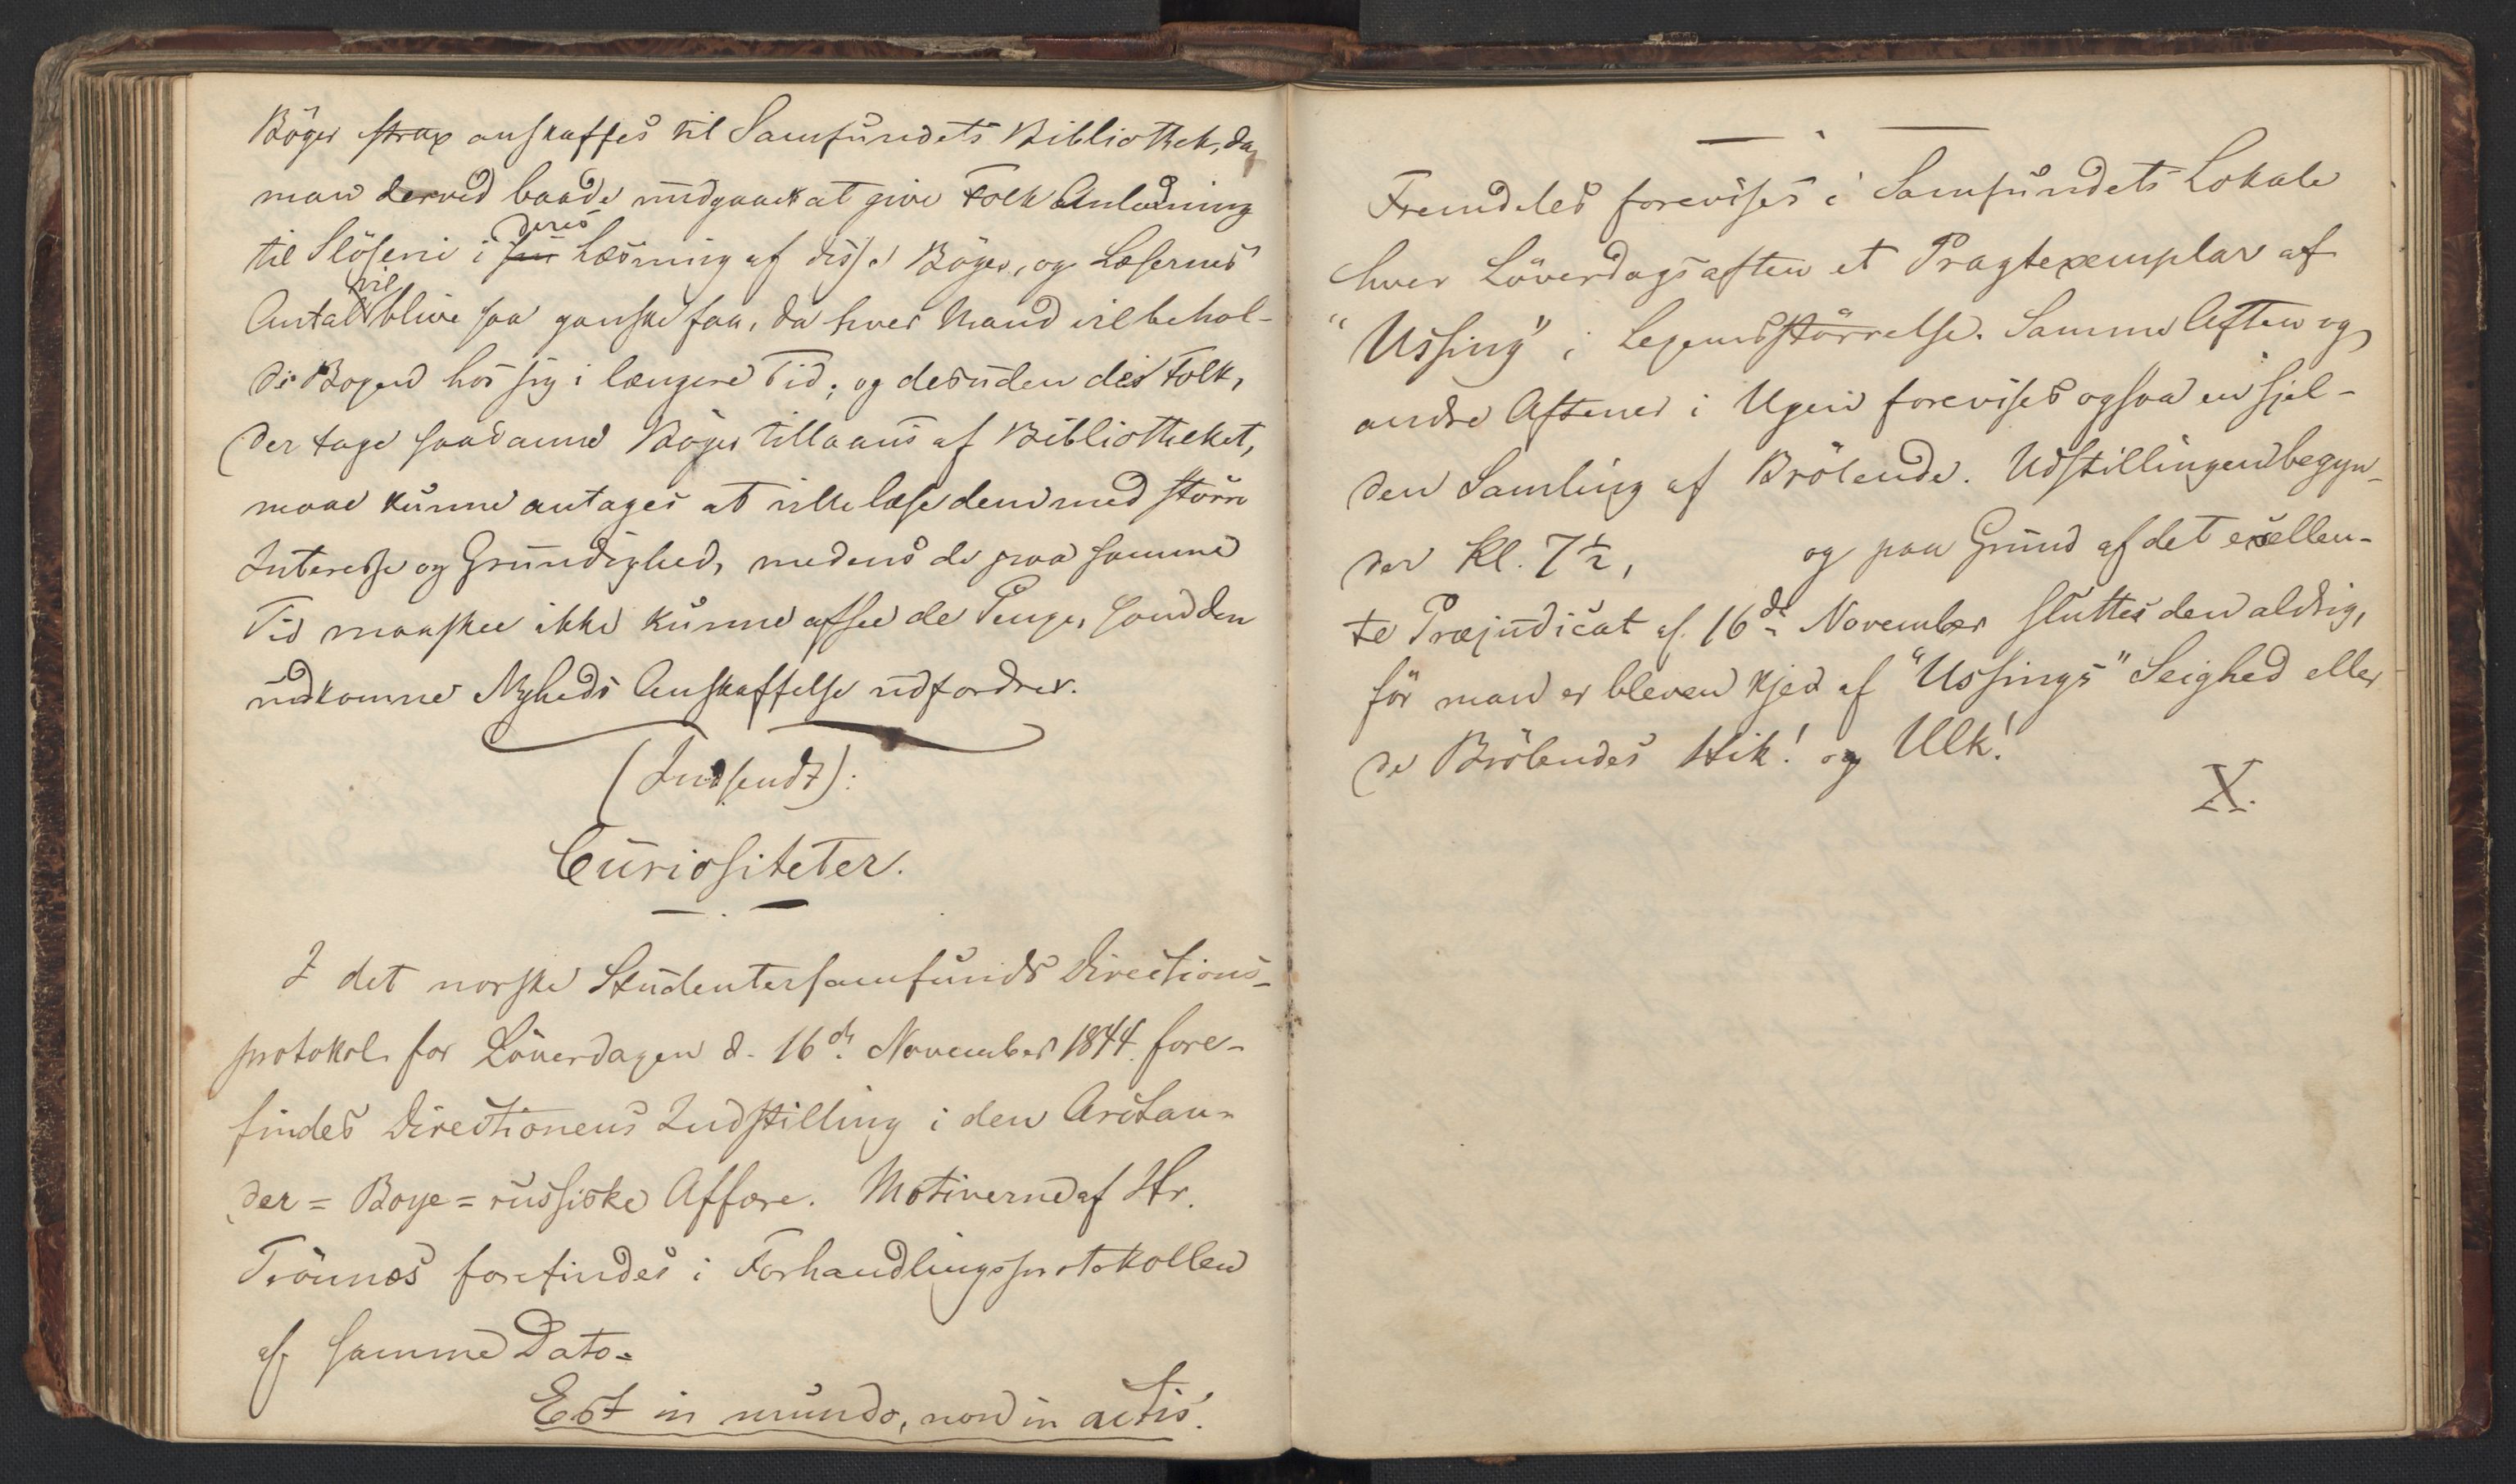 Böger strax anskaffes til Samfundets Bibliothek, da
man derved baade undgaaer at give Folk Anledning
til Slöseri i sin deres Læsning af disse Böger, og Læsernes
Antal vil blive saa ganske faa, da hver Mand vil behol-
de Bogen hos sig i længere Tid; og desuden de Folk,
der tage saadanne Böger tillaans af Bibliotheket,
maae kunne antages at ville læse dem med större
Interesse og Grundighed, medens de paa samme
Tid maaskee ikke kunne afsee de Penge, som den
udkomne Nyheds Anskaffelse udfordrer.
(Indsendt):
Curiositeter.
I det norske Studentersamfunds Directions-
protokol for Löverdagen d. 16de November 1844 fore-
findes Directionens Indstilling i den Arctan-
der=Boye=russiske Affære. Motiverne af Hr.
Trönnes forefindes i Forhandlingsprotokollen
af samme Dato.
Est in mundo, non in actis.
Fremdeles forevises i Samfundets Lokale
hver Löverdagsaften et Pragtexemplar af
"Ussing" i Legemsstörrelse. Samme Aften og
andre Aftener i Ugen forevises ogsaa en sjel-
den Samling af Brölende. Udstillingen begyn-
der Kl. 7½, og paa Grund af det exellen-
te Præjudicat af 16de November sluttes den aldrig,
för man er bleven kjed af "Ussings" Seighed eller
de Brölendes Hik! og Ulk!
X.